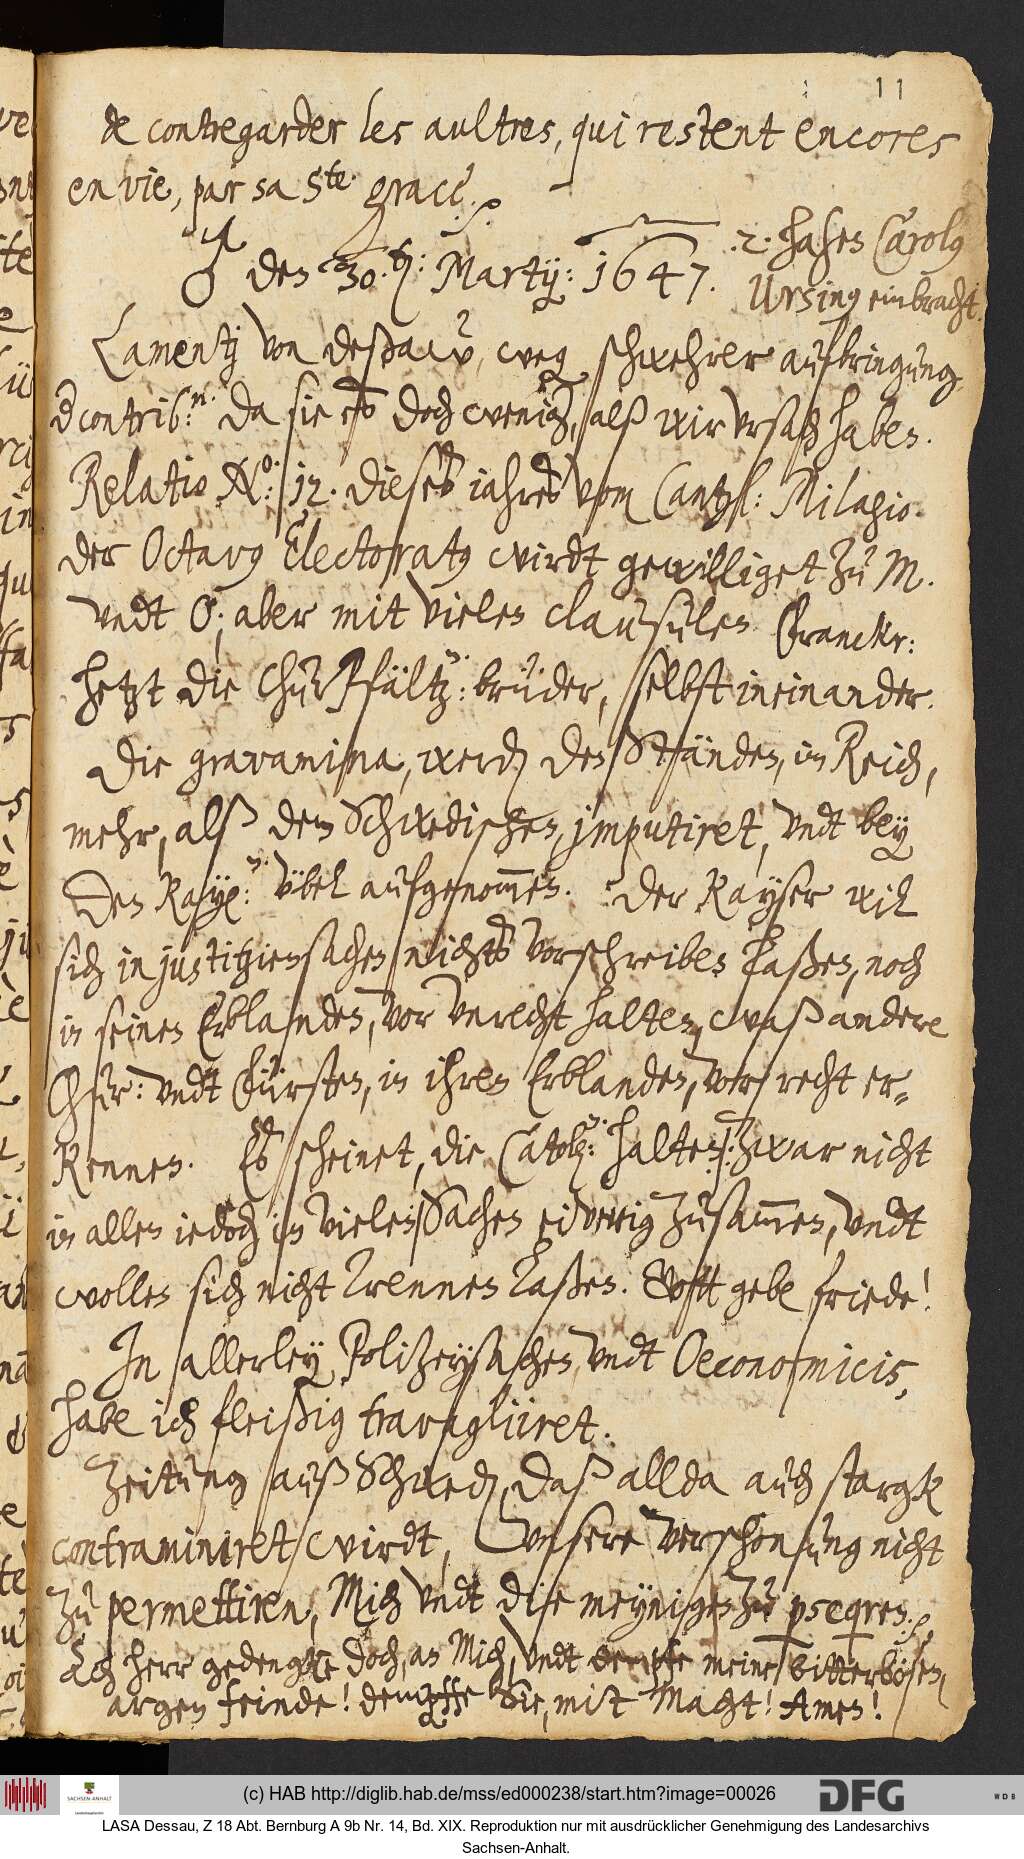 11
de contregarder les aultres, qui restent encores
en vie, par sa Ste. grace.
♂ den 30. t{en}: Martij: 1647.
2. hasen Carolus
Ursinus einbracht.
Lamentj von deßaw, weg schwehrer aufbringung,
d contrib:n. da sie es doch wenig, alß wir vrsach haben.
Relatio No: 12. dieses iahres vom Cantzl: Milagio.
der Octavus Electoratus wirdt gewilliget zu M.
vndt O; aber mit vielen clausulen Franckr:
hetzt die ChurPfältz: brüder, selbst ineinander.
Die gravamina, werden den Ständen, im Reich,
mehr, alß dem Schwedischen, imputiret, vndt bey
den Kayß: übel aufgenom̄en. Der Kayser wil
sich in justitziensachen nichts vorschreiben laßen, noch
in seinen Erblanden, vor vnrecht halten, waß andere
Chur: vndt Fürsten, in ihren Erblanden, vor recht er-
kennen. Es scheinet, die Catolj: halten, zwar nicht
in allen iedoch in vielen Sachen eiverig zusam̄en, vndt
wollen sich nicht trennen laßen. Gott gebe friede!
In allerley Polizeysachen, vndt Oeconomicis,
habe ich fleißig travagliiret.
Zeitung auß Schweden, Daß allda auch stargk
contraminiret wirdt, vnsere verschonung nicht
zu permettiren, Mich vndt die meynigen zu pseqren.
Ach herr gedengke doch, an Mich, vndt dempfe meine bitterbösen,
argen feinde! dempffe Sie, mit Macht! Amen!
(c) HAB http://diglib.hab.de/mss/ed000238/start.htm?image=00026
SACHSEN-ANHALT
DFG
WDB
LASA Dessau, Z 18 Abt. Bernburg A 9b Nr. 14, Bd. XIX. Reproduktion nur mit ausdrücklicher Genehmigung des Landesarchivs
Sachsen-Anhalt.